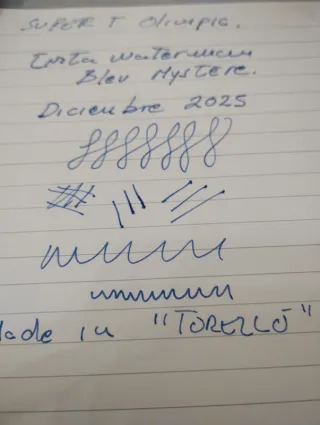 SUPER T Olimpia.
Tinta Waterman
Bleu Mystere.
Diciembre 2025
lade in "TORELLÓ"